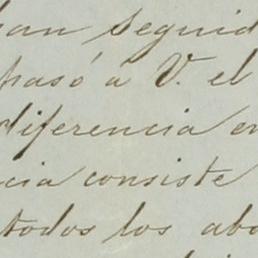 han seguid
pasó á V. el
diferencia en
cia consiste
todos los abo